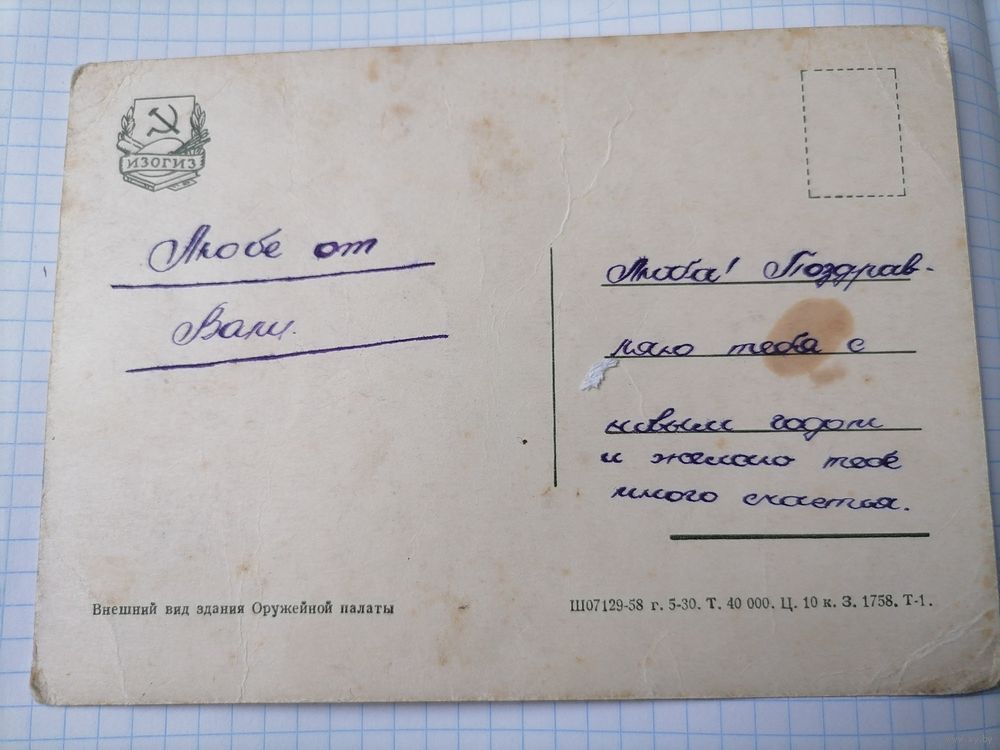 ИЗОГИЗ
Любе от
Вали.
Люба! Поздрав-
ляю тебя с
новым годом
и желаю тебе
много счастья.
Внешний вид здания Оружейной палаты
Ш07129-58 г. 5-30. Т. 40 000. Ц. 10 к. З. 1758. Т-1.